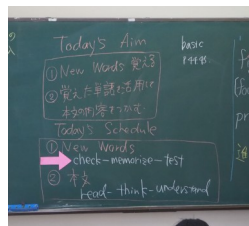 Today's Aim
① New Words 覚える
② 覚えた単語を活用して
本文の内容をつかむ
Today's Schedule
① New Words
check-memorize-test
② 本文
read-think-understand
basic